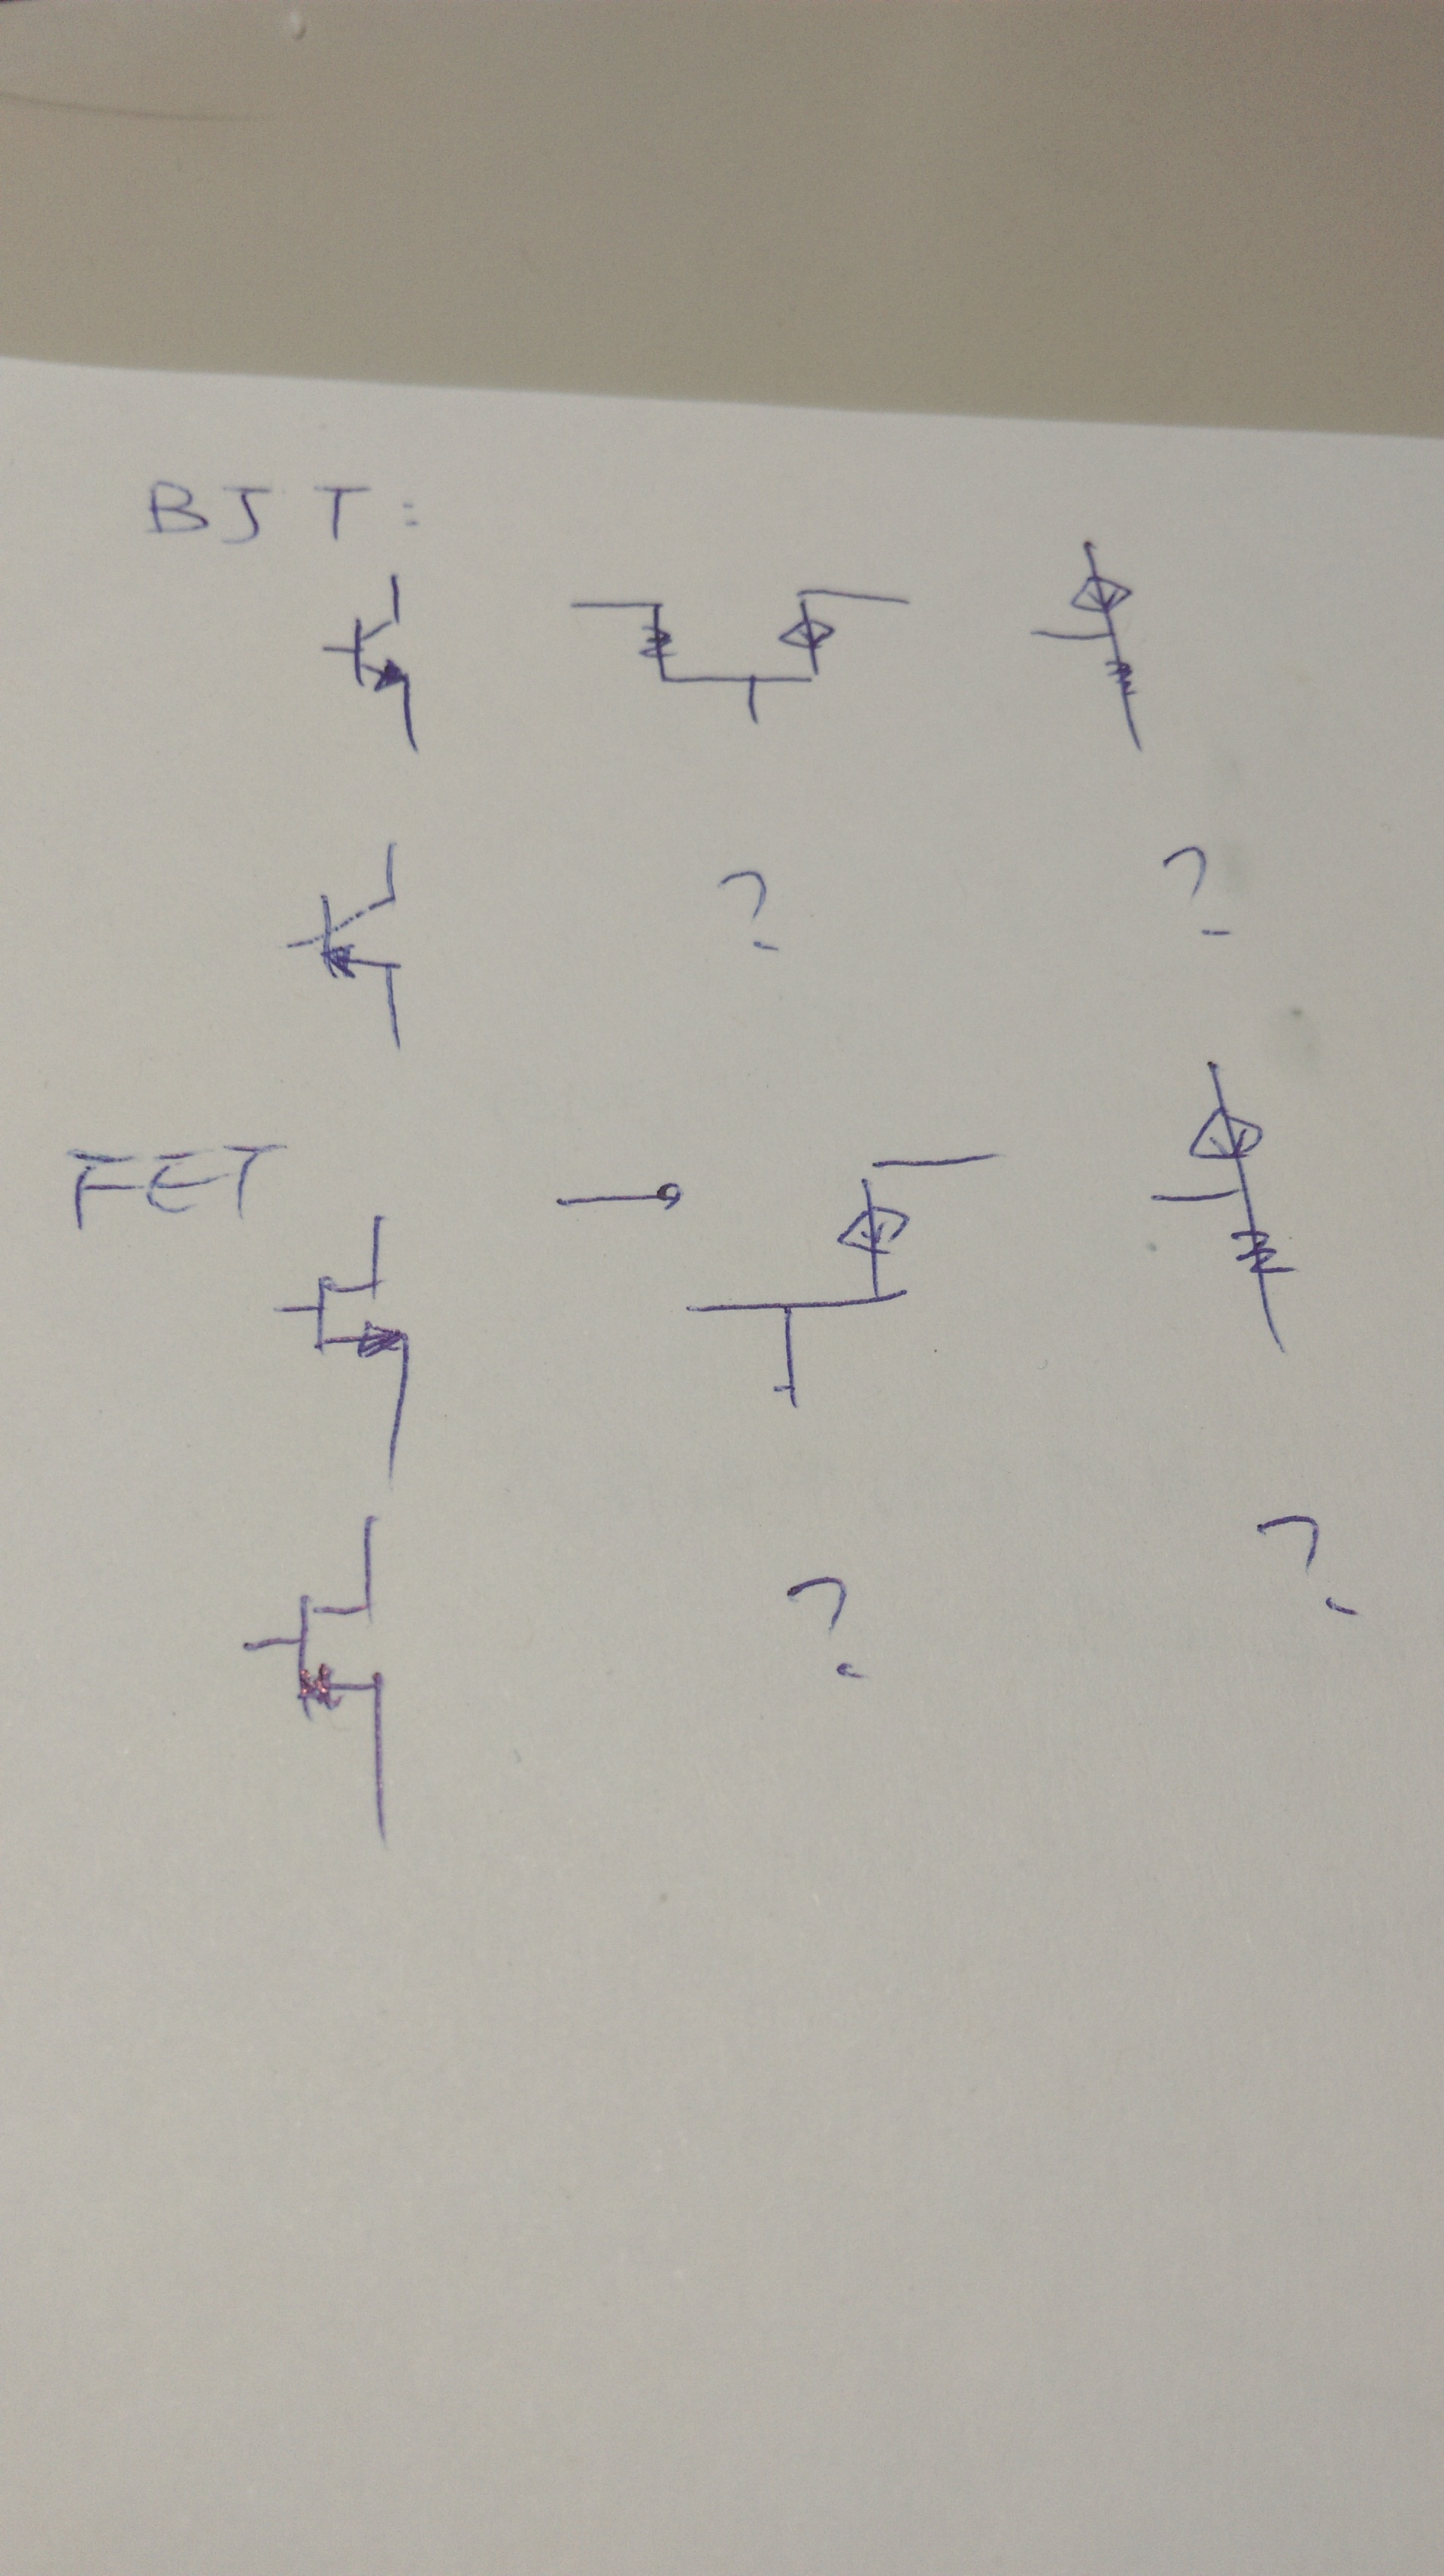 BJT:
? ?
FET
? ?